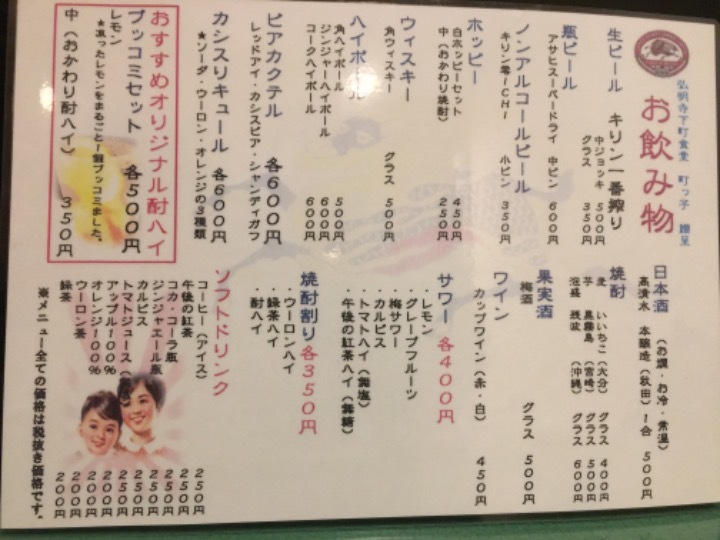 弘明寺下町食堂 町っ子 贈呈
お飲み物
生ビール キリン一番搾り
中ジョッキ 500円
グラス 350円
瓶ビール
アサヒスーパードライ 中ビン 600円
ノンアルコールビール
キリン零ICHI 小ビン 350円
ホッピー
白ホッピーセット 450円
中(おかわり焼酎) 250円
ウィスキー
角ウィスキー グラス 500円
ハイボール
角ハイボール 500円
ジンジャーハイボール 600円
コークハイボール 600円
ビアカクテル 各600円
レッドアイ・カシスビア・シャンディガフ
カシスリキュール 各600円
★ソーダ・ウーロン・オレンジの3種類
おすすめオリジナル酎ハイ
ブッコミセット 各500円
レモン
★凍ったレモンをまるごと1個ブッコミました。
中(おかわり酎ハイ) 350円
日本酒 (お燗・お冷・常温)
高清水 本醸造(秋田) 1合 500円
焼酎
麦 いいちこ(大分) グラス 400円
芋 黒霧島(宮崎) グラス 500円
泡盛 残波(沖縄) グラス 600円
果実酒
梅酒 グラス 500円
ワイン
カップワイン(赤・白) 450円
サワー 各400円
・レモン
・グレープフルーツ
・梅サワー
・カルピス
・トマトハイ(無塩)
・午後の紅茶ハイ(無糖)
焼酎割り 各350円
・ウーロンハイ
・緑茶ハイ
・酎ハイ
ソフトドリンク
コーヒー(アイス) 250円
午後の紅茶 250円
コカ・コーラ瓶 250円
ジンジャエール瓶 250円
カルピス 250円
トマトジュース( 250円
アップル100% 200円
オレンジ100% 200円
ウーロン茶 200円
緑茶 200円
※メニュー全ての価格は税抜き価格です。